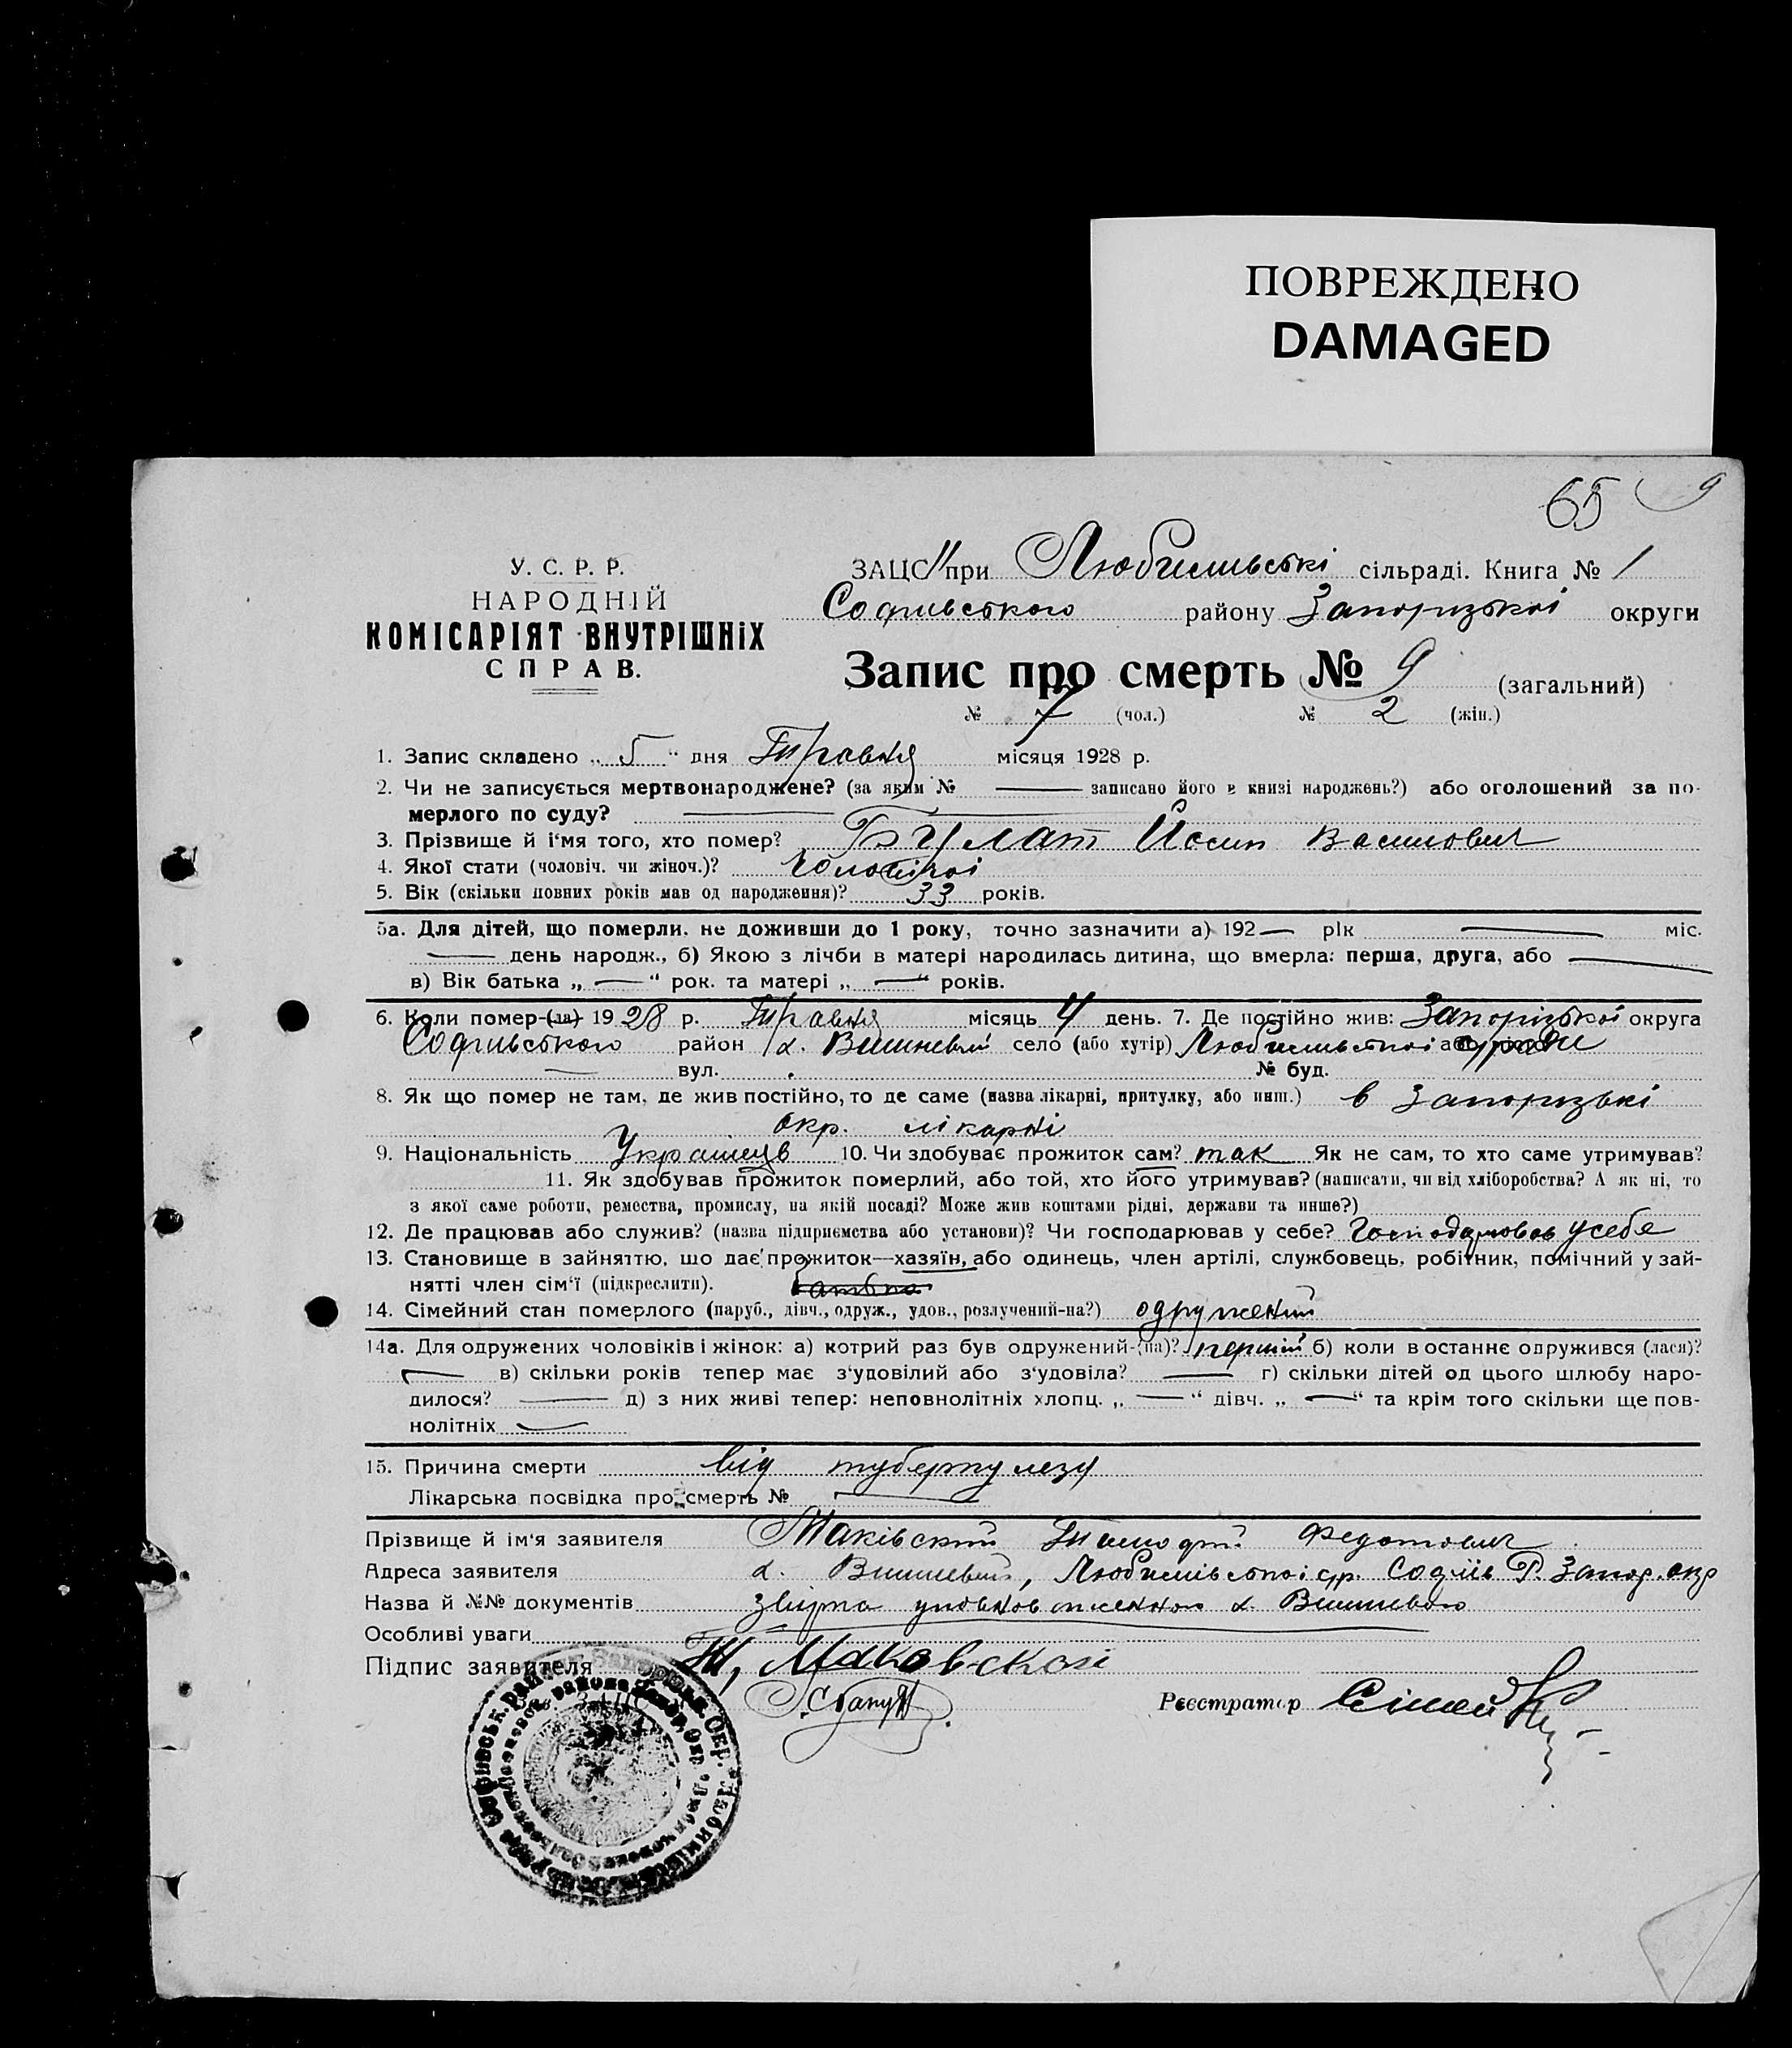 ПОВРЕЖДЕНО
DAMAGED
65 9
У. С. Р. Р.
НАРОДНІЙ
КОМІСАРІЯТ ВНУТРІШНІХ
СПРАВ.
ЗАЦС при Любимівські сільраді. Книга № 1
Софіївського району Запоризької округи
Запис про смерть № 9 (загальний)
№ 7 (чол.) № 2 (жін.)
1. Запис складено „ 5 “ дня Травня місяця 1928 р.
2. Чи не записується мертвонароджене? (за яким № — записано його в книзі народжень?) або оголошений за по-
мерлого по суду? —
3. Прізвище й і‘мя того, хто помер? Булат Йосип Василович
4. Якої стати (чоловіч. чи жіноч.)? Чоловічої
5. Вік (скільки повних років мав од народження)? 33 років.
5а. Для дітей, що померли, не доживши до 1 року, точно зазначити а) 192— рік — міс.
— день народж., б) Якою з лічби в матері народилась дитина, що вмерла: перша, друга, або —
в) Вік батька „ — “ рок. та матері „ — “ років.
6. Коли помер-(ла) 1928 р. Травня місяць 4 день. 7. Де постійно жив: Запорізької округа
Софіівського район х. Вишневий село (або хутір) Любимівської с/ради
— вул. № буд.
8. Як що помер не там, де жив постійно, то де саме (назва лікарні, притулку, або инш.) в Запоризькі
окр. лікарні
9. Національність Українець 10. Чи здобуває прожиток сам? так Як не сам, то хто саме утримував?
11. Як здобував прожиток померлий, або той, хто його утримував? (написати, чи від хліборобства? А як ні, то
з якої саме роботи, ремества, промислу, на якій посаді? Може жив коштами рідні, держави та инше?)
12. Де працював або служив? (назва підприємства або установи)? Чи господарював у себе? Господарював у себе
13. Становище в зайняттю, шо дає прожиток—хазяїн, або одинець, член артілі, службовець, робітник, помічний у зай-
нятті член сім‘ї (підкреслити).
14. Сімейний стан померлого (паруб., дівч., одруж., удов., розлучений-на?) одружений
14а. Для одружених чоловіків і жінок: а) котрий раз був одружений-(на)? перший б) коли в останнє одружився (лася)?
— в) скільки років тепер має з‘удовілий або з‘удовіла? — г) скільки дітей од цього шлюбу наро-
дилося? — д) з них живі тепер: неповнолітніх хлопц. „ — “ дівч. „ — “ та крім того скільки ще пов-
нолітніх —
15. Причина смерти від туберкулезу
Лікарська посвідка про смерть № —
Прізвище й ім‘я заявителя Маківский Тимофій Федотович
Адреса заявителя х. Вишневий, Любимівської с/р. Софіїв Р. Запор. окр
Назва й №№ документів звірка уповноваженного х. Вишневого
Особливі уваги
Підпис заявителя Т, Маковской
Реєстратор